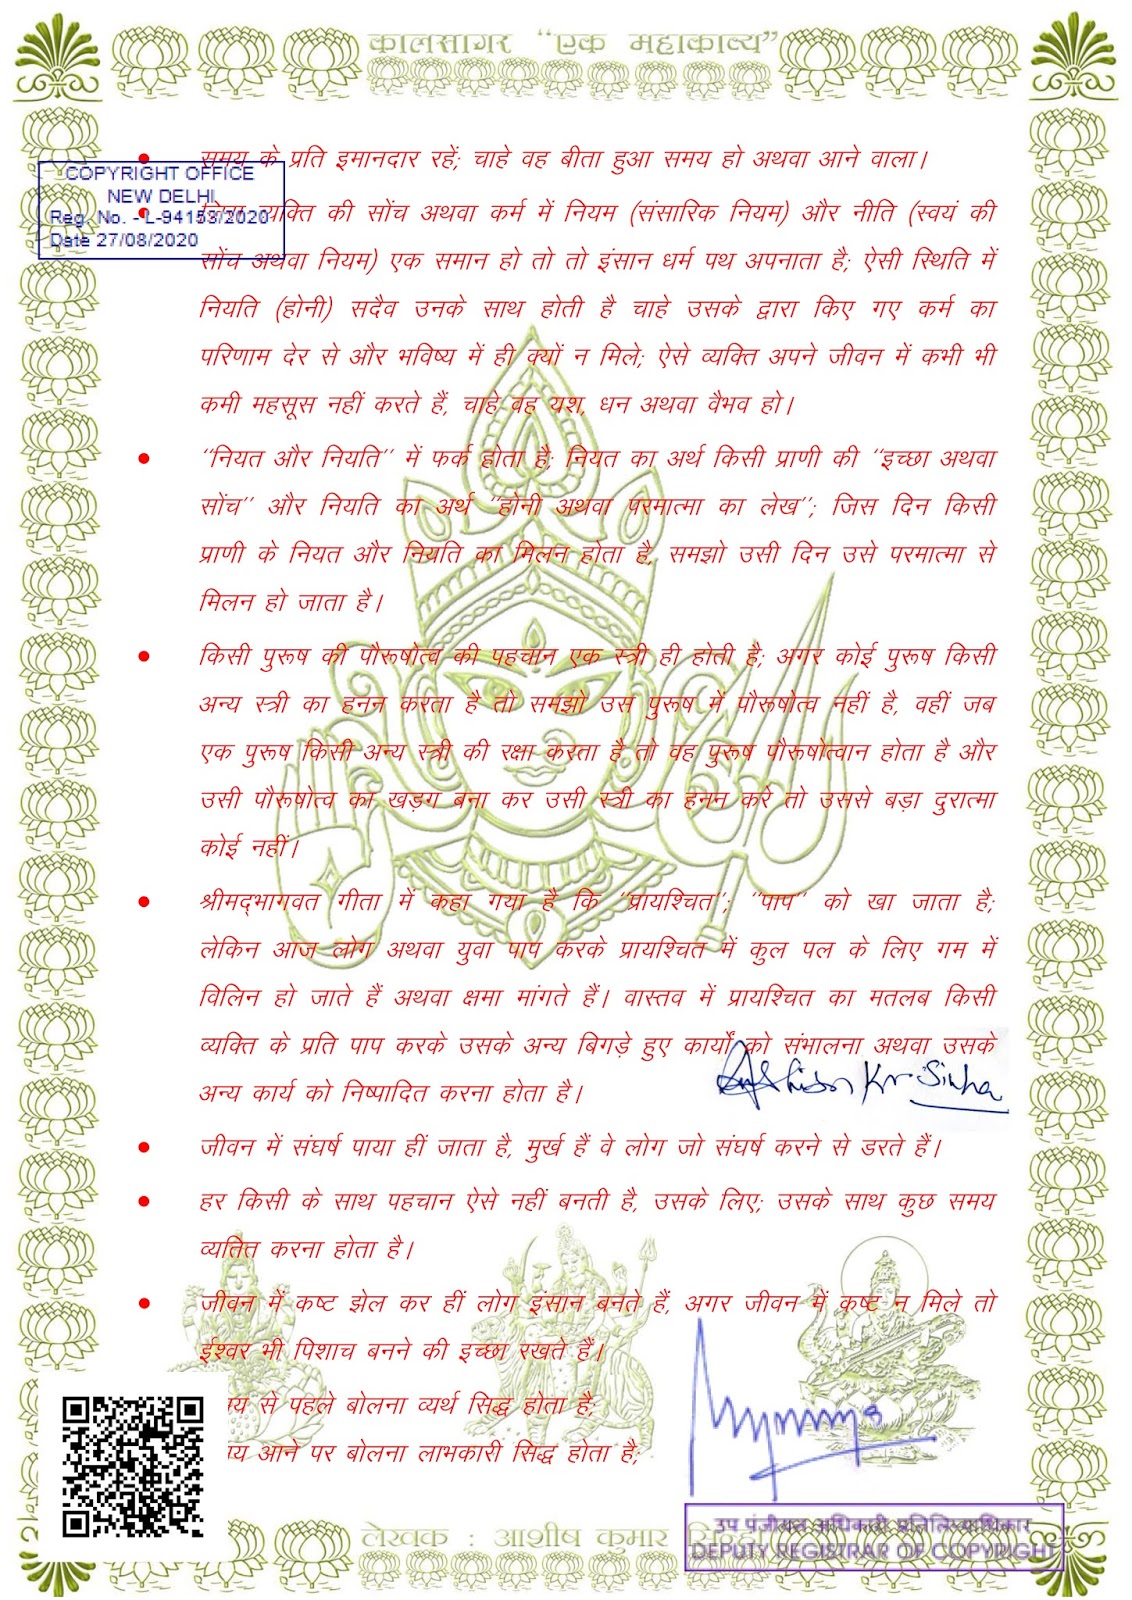 कालसागर “एक महाकाव्य”
समय के प्रति इमानदार रहें; चाहे वह बीता हुआ समय हो अथवा आने वाला।
COPYRIGHT OFFICE
NEW DELHI
Reg. No. - L-94153/2020
Date 27/08/2020
व्यक्ति की सोंच अथवा कर्म में नियम (संसारिक नियम) और नीति (स्वयं की
सोंच अथवा नियम) एक समान हो तो तो इंसान धर्म पथ अपनाता है; ऐसी स्थिति में
नियति (होनी) सदैव उनके साथ होती है चाहे उसके द्वारा किए गए कर्म का
परिणाम देर से और भविष्य में ही क्यों न मिले; ऐसे व्यक्ति अपने जीवन में कभी भी
कमी महसूस नहीं करते हैं, चाहे वह यश, धन अथवा वैभव हो।
“नियत और नियति” में फर्क होता है; नियत का अर्थ किसी प्राणी की “इच्छा अथवा
सोंच” और नियति का अर्थ “होनी अथवा परमात्मा का लेख”; जिस दिन किसी
प्राणी के नियत और नियति का मिलन होता है, समझो उसी दिन उसे परमात्मा से
मिलन हो जाता है।
किसी पुरूष की पौरूषोत्व की पहचान एक स्त्री ही होती है; अगर कोई पुरूष किसी
अन्य स्त्री का हनन करता है तो समझो उस पुरूष में पौरूषोत्व नहीं है, वहीं जब
एक पुरूष किसी अन्य स्त्री की रक्षा करता है तो वह पुरूष पौरूषोत्वान होता है और
उसी पौरूषोत्व का खड़ग बना कर उसी स्त्री का हनन करे तो उससे बड़ा दुरात्मा
कोई नहीं।
श्रीमद्‌भागवत गीता में कहा गया है कि “प्रायश्चित”; “पाप” को खा जाता है;
लेकिन आज लोग अथवा युवा पाप करके प्रायश्चित में कुल पल के लिए गम में
विलिन हो जाते हैं अथवा क्षमा मांगते हैं। वास्तव में प्रायश्चित का मतलब किसी
व्यक्ति के प्रति पाप करके उसके अन्य बिगड़े हुए कार्यों को संभालना अथवा उसके
अन्य कार्य को निष्पादित करना होता है।
Kr Sinha
जीवन में संघर्ष पाया हीं जाता है, मुर्ख हैं वे लोग जो संघर्ष करने से डरते हैं।
हर किसी के साथ पहचान ऐसे नहीं बनती है, उसके लिए; उसके साथ कुछ समय
व्यतित करना होता है।
जीवन में कष्ट झेल कर हीं लोग इंसान बनते हैं, अगर जीवन में कष्ट न मिले तो
ईश्वर भी पिशाच बनने की इच्छा रखते हैं।
से पहले बोलना व्यर्थ सिद्ध होता है;
आने पर बोलना लाभकारी सिद्ध होता है;
लेखक : आशीष कुमार
उप पंजीयन अधिकारी प्रतिलिप्याधिकार
DEPUTY REGISTRAR OF COPYRIGHT